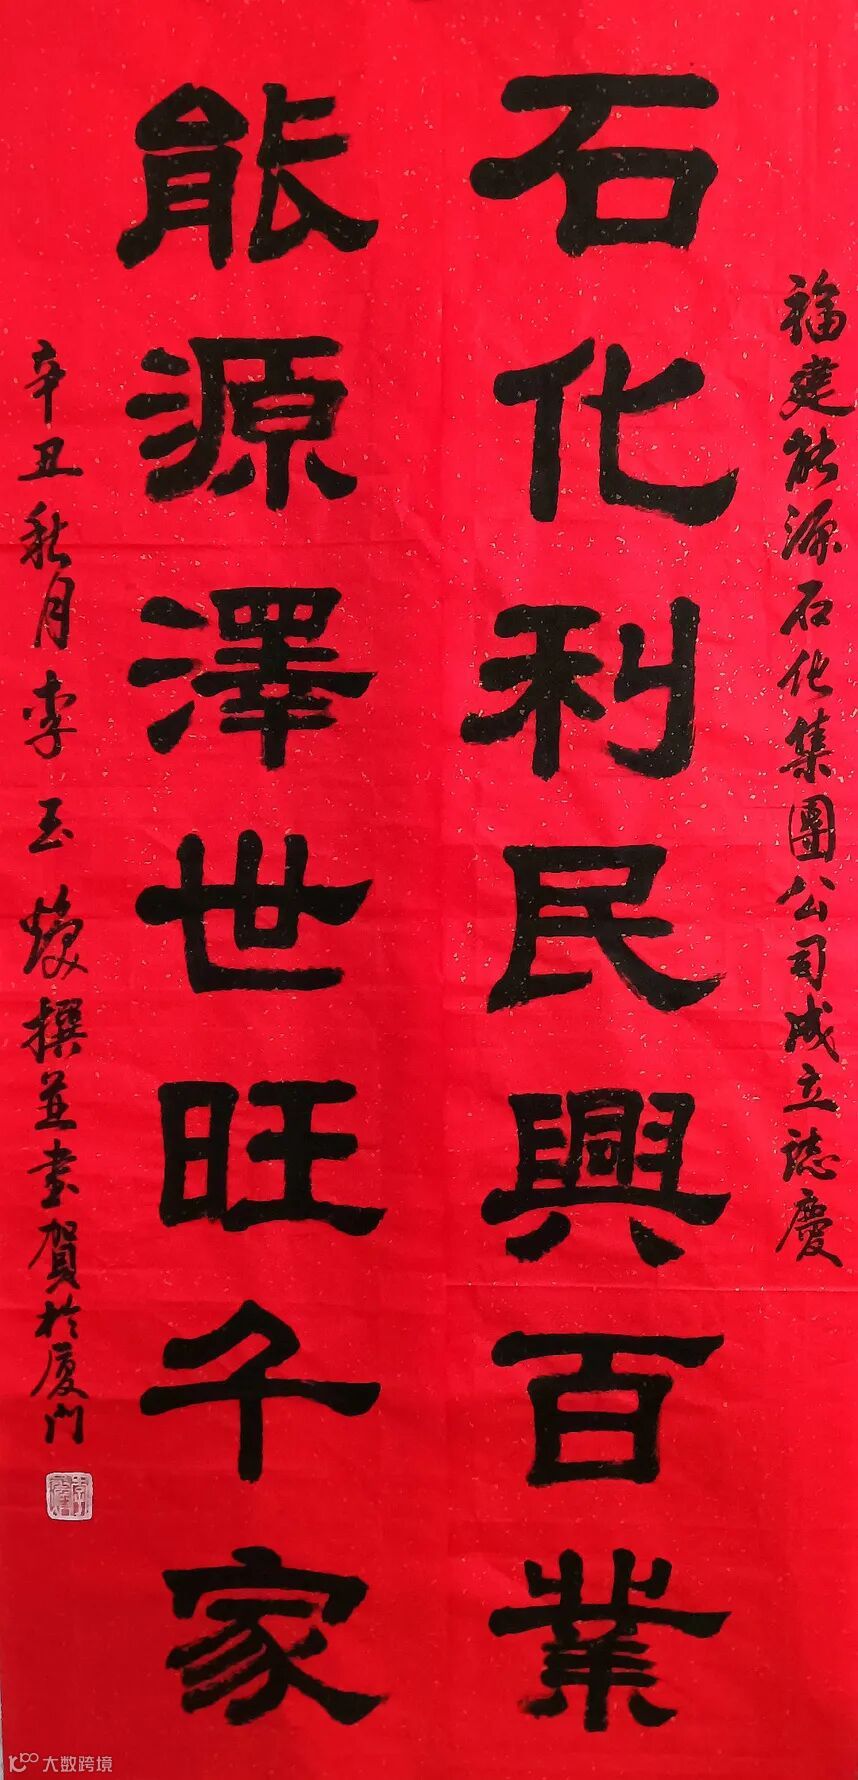 福建能源石化集團公司成立誌慶
石化利民興百業
能源澤世旺千家
辛丑秋月李玉焕撰並書賀於厦门
大数跨境